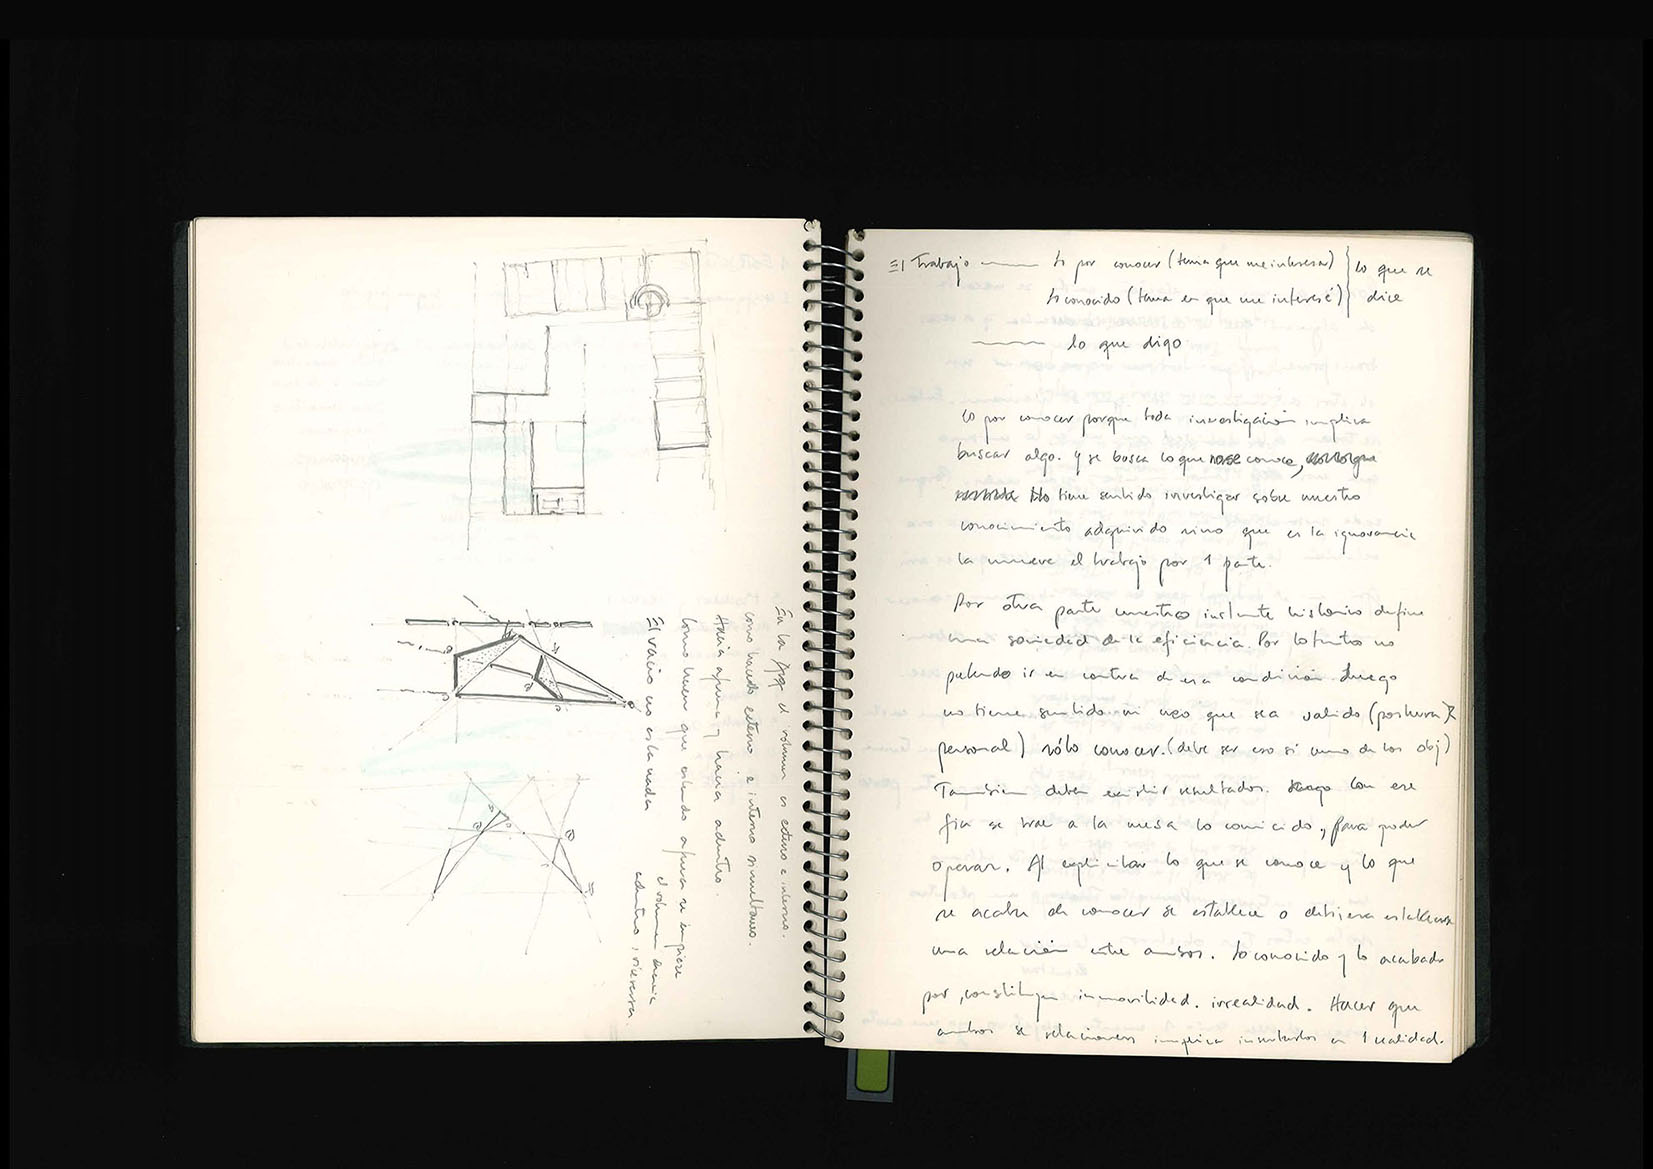 En la       el volumen es externo e interno.
como haciendo externo e interno simultaneo.
Hacia afuera y hacia adentro.
como hacer que estando afuera se ingrese
El vacio no es la nada
el volumen hacia
adentro, viceversa.
El trabajo lo por conocer (tema que me interesa) } lo que se
lo conocido (tema en que me interesé) } dice
lo que digo
Lo por conocer porque toda investigación implica
buscar algo. y se busca lo que no se conoce,
No tiene sentido investigar sobre nuestro
conocimiento adquirido sino que es la ignorancia
la mueve el trabajo por 1 parte.
Por otra parte nuestro instante historico define
una sociedad de la eficiencia. Por lo tanto no
pretendo ir en contra de esa condición. Luego
no tiene sentido ni creo que sea valido (postura
personal) sólo conocer. (debe ser eso si uno de los obj)
Tambien deben existir resultados. Con ese
fin se trae a la mesa lo conocido, para poder
operar. Al explicitar lo que se conoce y lo que
se acaba de conocer se establece o debiera establecerse
una relación entre ambos. Lo conocido y lo acabado
por, constituyen inmovilidad. irrealidad. Hacer que
ambos se relacionen implica insertarlos en 1 realidad.